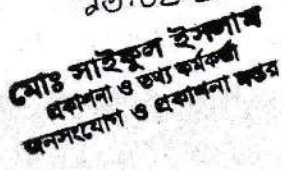 ২০.০২
মোঃ সাইফুল ইসলাম
প্রকাশনা ও তথ্য কর্মকর্তা
জনসংযোগ ও প্রকাশনা দপ্তর